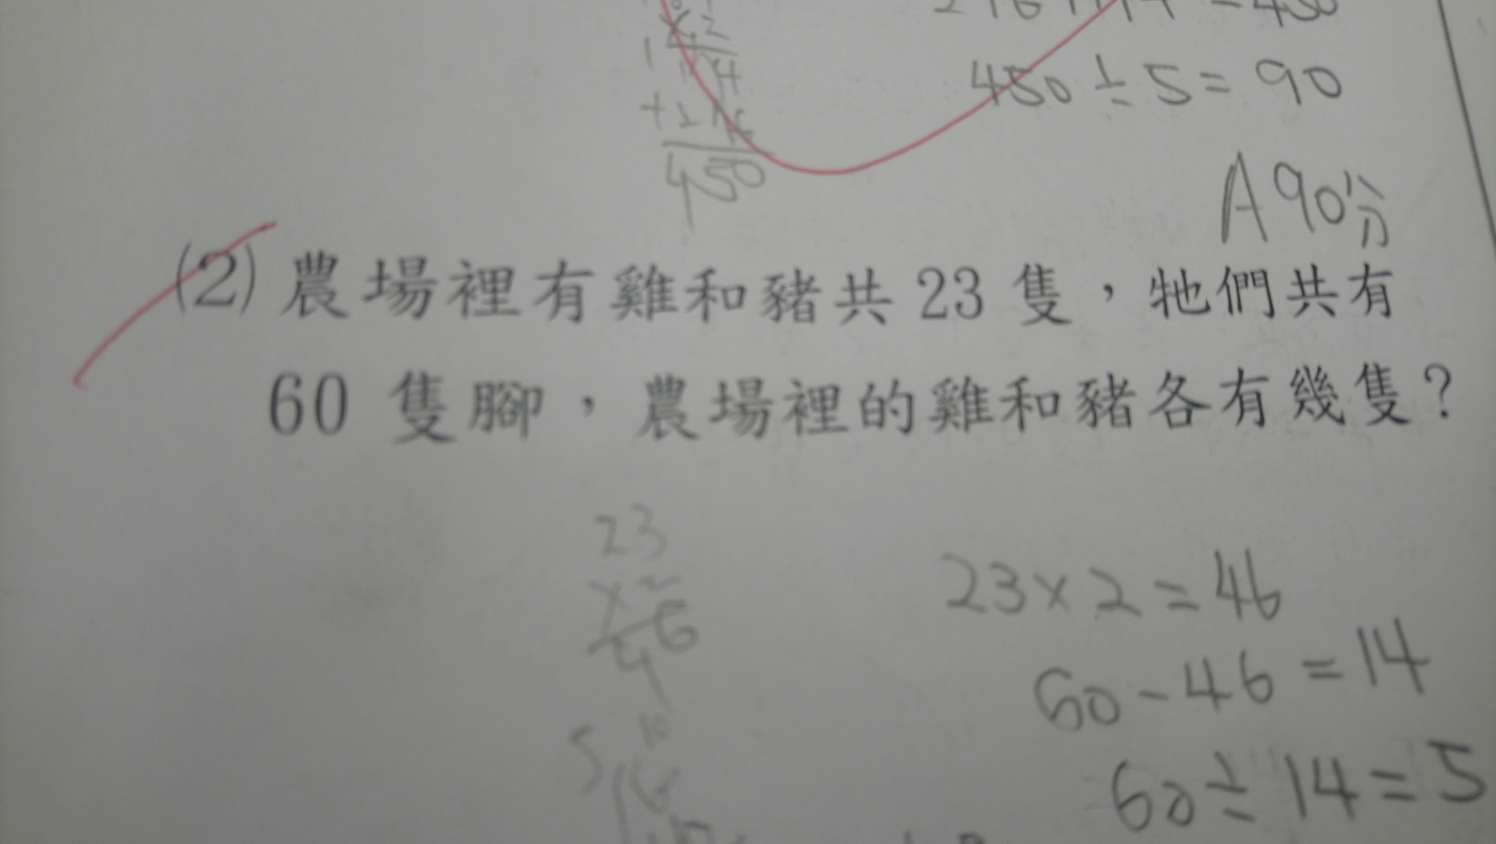 450÷5=90
+216
450
A90分
(2) 農場裡有雞和豬共 23 隻，牠們共有
60 隻腳，農場裡的雞和豬各有幾隻？
23
×2
46
23×2=46
60-46=14
60÷14=5